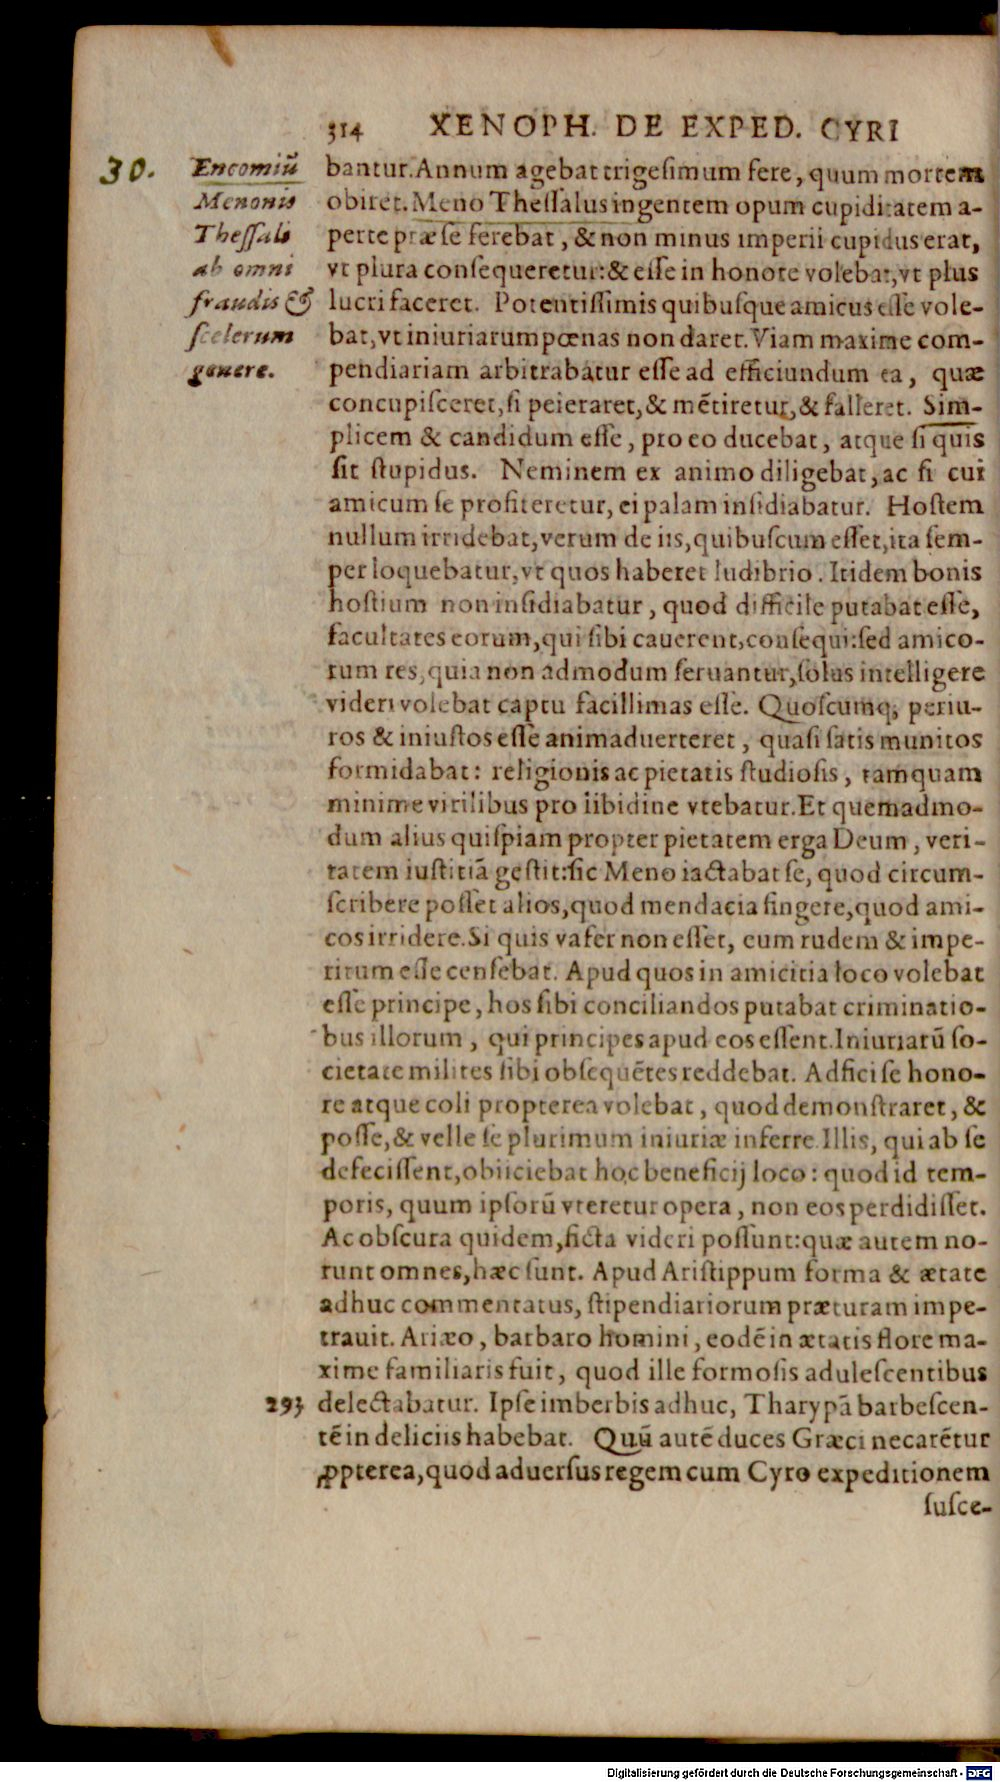 314 XENOPH. DE EXPED. CYRI
30.
Encomiū
Menonis
Theſſali
ab omni
fraudis &
ſcelerum
genere.
bantur. Annum agebat trigeſimum fere, quum mortem
obiret. Meno Theſſalus ingentem opum cupiditatem a-
perte præ ſe ferebat, & non minus imperii cupidus erat,
vt plura conſequeretur: & eſſe in honore volebat, vt plus
lucri faceret. Potentiſſimis quibuſque amicus eſſe vole-
bat, vt iniuriarum pœnas non daret. Viam maxime com-
pendiariam arbitrabatur eſſe ad efficiundum ea, quæ
concupiſceret, ſi peieraret, & mētiretur, & falleret. Sim-
plicem & candidum eſſe, pro eo ducebat, atque ſi quis
ſit ſtupidus. Neminem ex animo diligebat, ac ſi cui
amicum ſe profiteretur, ei palam inſidiabatur. Hoſtem
nullum irridebat, verum de iis, quibuſcum eſſet, ita ſem-
per loquebatur, vt quos haberet ludibrio. Itidem bonis
hoſtium non inſidiabatur, quod difficile putabat eſſe,
facultates eorum, qui ſibi cauerent, conſequi: ſed amico-
rum res, quia non admodum ſeruantur, ſolus intelligere
videri volebat captu facillimas eſſe. Quoſcumq; periu-
ros & iniuſtos eſſe animaduerteret, quaſi ſatis munitos
formidabat: religionis ac pietatis ſtudioſis, tamquam
minime virilibus pro libidine vtebatur. Et quemadmo-
dum alius quiſpiam propter pietatem erga Deum, veri-
tatem iuſtitiā geſtit: ſic Meno iactabat ſe, quod circum-
ſcribere poſſet alios, quod mendacia fingere, quod ami-
cos irridere. Si quis vafer non eſſet, eum rudem & impe-
ritum eſſe cenſebat. Apud quos in amicitia loco volebat
eſſe principe, hos ſibi conciliandos putabat criminatio-
bus illorum, qui principes apud eos eſſent. Iniuriarū ſo-
cietate milites ſibi obſequētes reddebat. Adfici ſe hono-
re atque coli propterea volebat, quod demonſtraret, &
poſſe, & velle ſe plurimum iniuriæ inferre. Illis, qui ab ſe
defeciſſent, obiiciebat hoc beneficij loco: quod id tem-
poris, quum ipſorū vteretur opera, non eos perdidiſſet.
Ac obſcura quidem, ficta videri poſſunt: quæ autem no-
runt omnes, hæc ſunt. Apud Ariſtippum forma & ætate
adhuc commentatus, ſtipendiariorum præturam impe-
trauit. Ariæo, barbaro homini, eodē in ætatis flore ma-
xime familiaris fuit, quod ille formoſis aduleſcentibus
293 delectabatur. Ipſe imberbis adhuc, Tharypā barbeſcen-
tē in deliciis habebat. Quū autē duces Græci necarētur
ꝓpterea, quod aduerſus regem cum Cyro expeditionem
ſuſce-
Digitalisierung gefördert durch die Deutsche Forschungsgemeinschaft - DFG